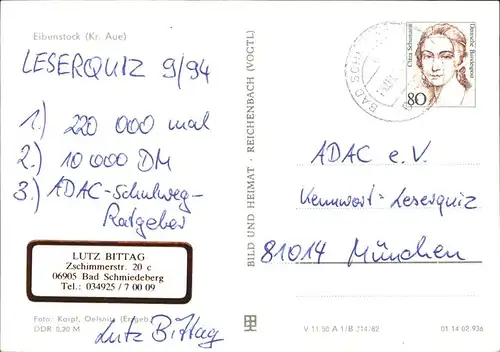 Eibenstock (Kr. Aue)
LESERQUIZ 9/94
1.) 220 000 mal
2.) 10 000 DM
3.) ADAC-Schulweg-
Ratgeber
LUTZ BITTAG
Zschimmerstr. 20 c
06905 Bad Schmiedeberg
Tel.: 034925 / 7 00 09
Foto: Karpf, Oelsnitz (Erzgeb.)
DDR 0,20 M
Lutz Bittag
BILD UND HEIMAT · REICHENBACH (VOGTL)
BAD
Clara Schumann
Deutsche Bundespost
80
ADAC e.V.
Kennwort: Leserquiz
81014 München
V 11 50 A 1/B 214/82
01 14 02 936